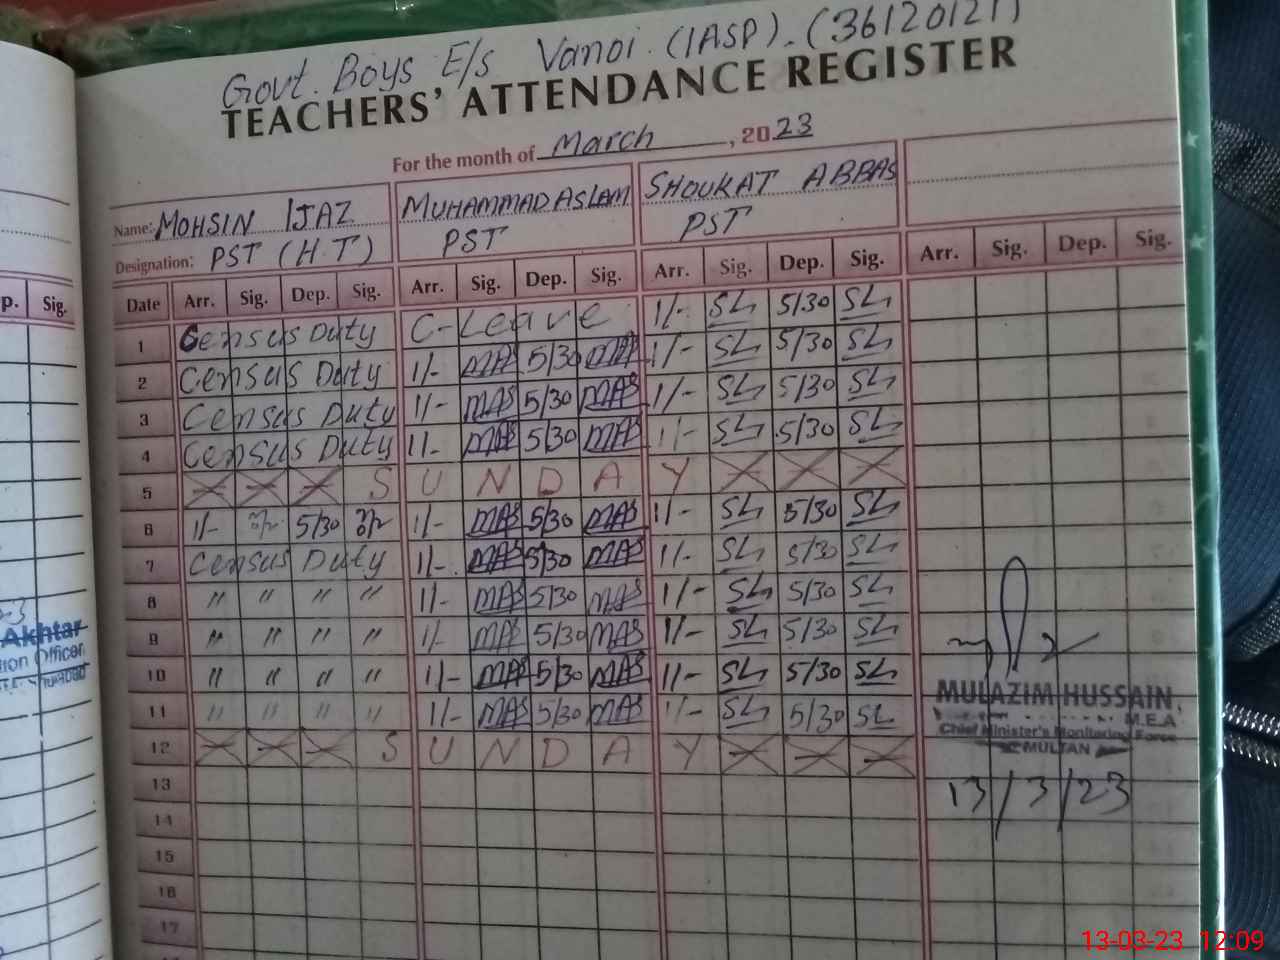 Govt. Boys E/s Vanoi. (IASP). (36120121)
TEACHERS' ATTENDANCE REGISTER
For the month of March, 2023
Name: MOHSIN IJAZ MUHAMMAD ASLAM SHOUKAT ABBAS
Designation: PST (H.T) PST PST
p. Sig. Date Arr. Sig. Dep. Sig. Arr. Sig. Dep. Sig. Arr. Sig. Dep. Sig. Arr. Sig. Dep. Sig.
1 Census Duty C-Leave 1/- SL 5/30 SL
2 Census Duty 1/- MAS 5/30 MAS 1/- SL 5/30 SL
3 Census Duty 1/- MAS 5/30 MAS 1/- SL 5/30 SL
4 Census Duty 1/- MAS 5/30 MAS 1/- SL 5/30 SL
5 S U N D A Y
6 1/- 5/30 1/- MAS 5/30 MAS 1/- SL 5/30 SL
7 Census Duty 1/- MAS 5/30 MAS 1/- SL 5/30 SL
8 " " " " 1/- MAS 5/30 MAS 1/- SL 5/30 SL
9 " " " " 1/- MAS 5/30 MAS 1/- SL 5/30 SL
10 " " " " 1/- MAS 5/30 MAS 1/- SL 5/30 SL
11 " " " " 1/- MAS 5/30 MAS 1/- SL 5/30 SL
12 S U N D A Y
13
14
15
16
17
Akhtar
Officer
MULAZIM HUSSAIN
M.E.A
Chief Minister's Monitoring Force
MULTAN
13/3/23
13-03-23 12:09